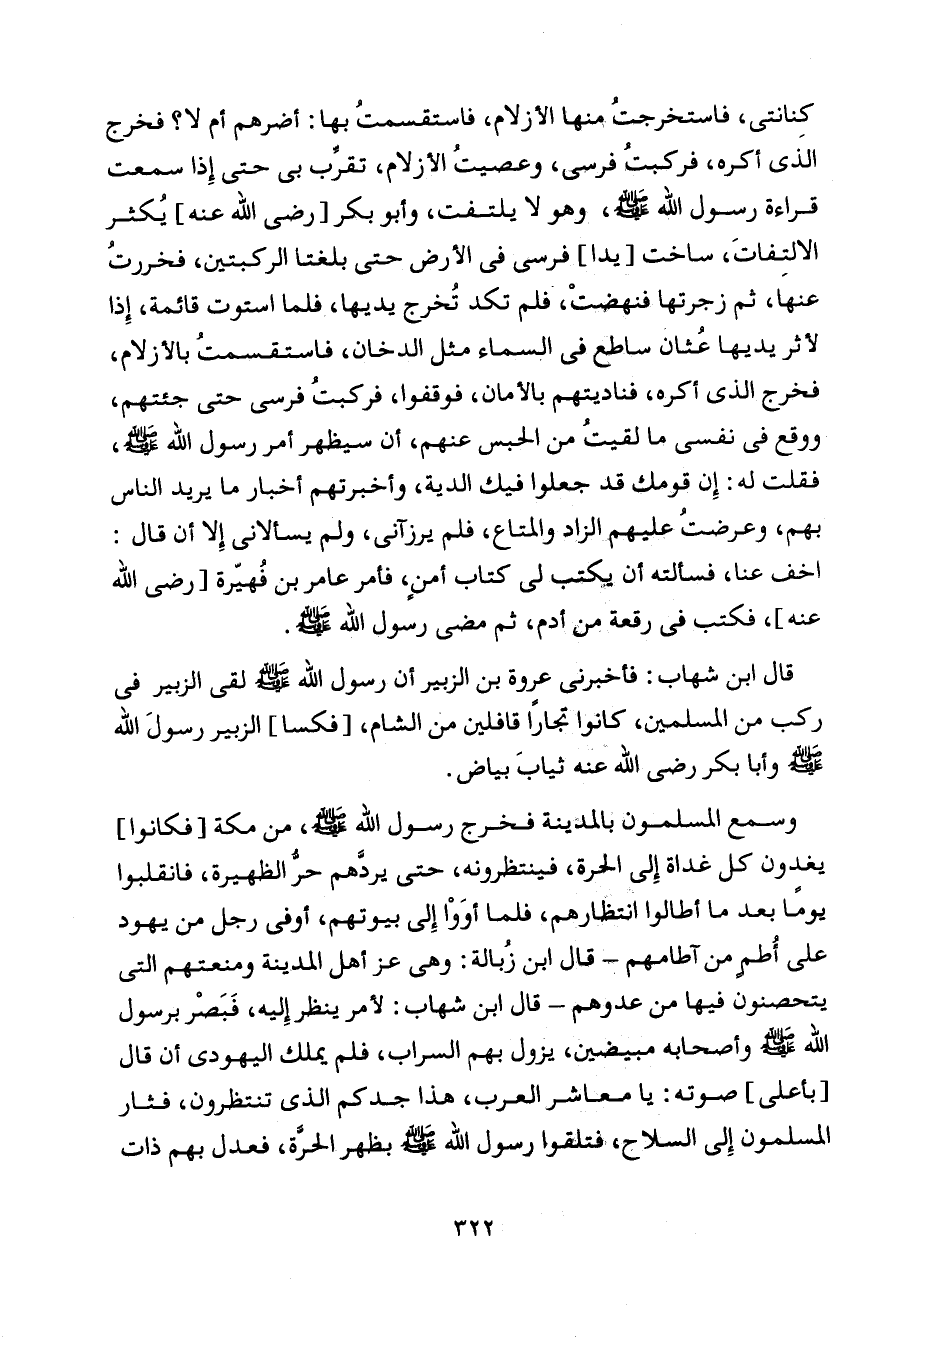 كنانتى، فاستخرجتُ منها الأزلام، فاستقسمتُ بها: أضرهم أم لا؟ فخرج
الذى أكره، فركبتُ فرسى، وعصيتُ الأزلام، تقرِّب بى حتى إذا سمعت
قراءة رسول الله ﷺ، وهو لا يلتفت، وأبو بكر [رضى الله عنه] يُكثر
الالتفاتَ، ساخت [يدا] فرسى فى الأرض حتى بلغتا الركبتين، فخررتُ
عنها، ثم زجرتها فنهضتْ، فلم تكد تُخرج يديها، فلما استوت قائمة، إذا
لأثر يديها عُثان ساطع فى السماء مثل الدخان، فاستقسمتُ بالأزلام،
فخرج الذى أكره، فناديتهم بالأمان، فوقفوا، فركبتُ فرسى حتى جئتهم،
ووقع فى نفسى ما لقيتُ من الحبس عنهم، أن سيظهر أمر رسول الله ﷺ،
فقلت له: إن قومك قد جعلوا فيك الدية، وأخبرتهم أخبار ما يريد الناس
بهم، وعرضتُ عليهم الزاد والمتاع، فلم يرزآنى، ولم يسألانى إلا أن قال :
اخف عنا، فسألته أن يكتب لى كتاب أمنٍ، فأمر عامر بن فُهيّرة [رضى الله
عنه]، فكتب فى رقعة من أدم، ثم مضى رسول الله ﷺ.
قال ابن شهاب: فأخبرنى عروة بن الزبير أن رسول الله ﷺ لقى الزبير فى
ركب من المسلمين، كانوا تجارًا قافلين من الشام، [فكسا] الزبير رسولَ الله
ﷺ وأبا بكر رضى الله عنه ثيابَ بياض.
وسمع المسلمون بالمدينة فخرج رسول الله ﷺ، من مكة [فكانوا]
يغدون كل غداة إلى الحرة، فينتظرونه، حتى يردَّهم حرُّ الظهيرة، فانقلبوا
يومًا بعد ما أطالوا انتظارهم، فلما أوَوْا إلى بيوتهم، أوفى رجل من يهود
على أُطمٍ من آطامهم – قال ابن زُبالة: وهى عز أهل المدينة ومنعتهم التى
يتحصنون فيها من عدوهم – قال ابن شهاب: لأمر ينظر إليه، فَبَصْر برسول
الله ﷺ وأصحابه مبيضين، يزول بهم السراب، فلم يملك اليهودى أن قال
[بأعلى] صوته: يا معاشر العرب، هذا جدكم الذى تنتظرون، فثار
المسلمون إلى السلاح، فتلقوا رسول الله ﷺ بظهر الحرَّة، فعدل بهم ذات
٣٢٢